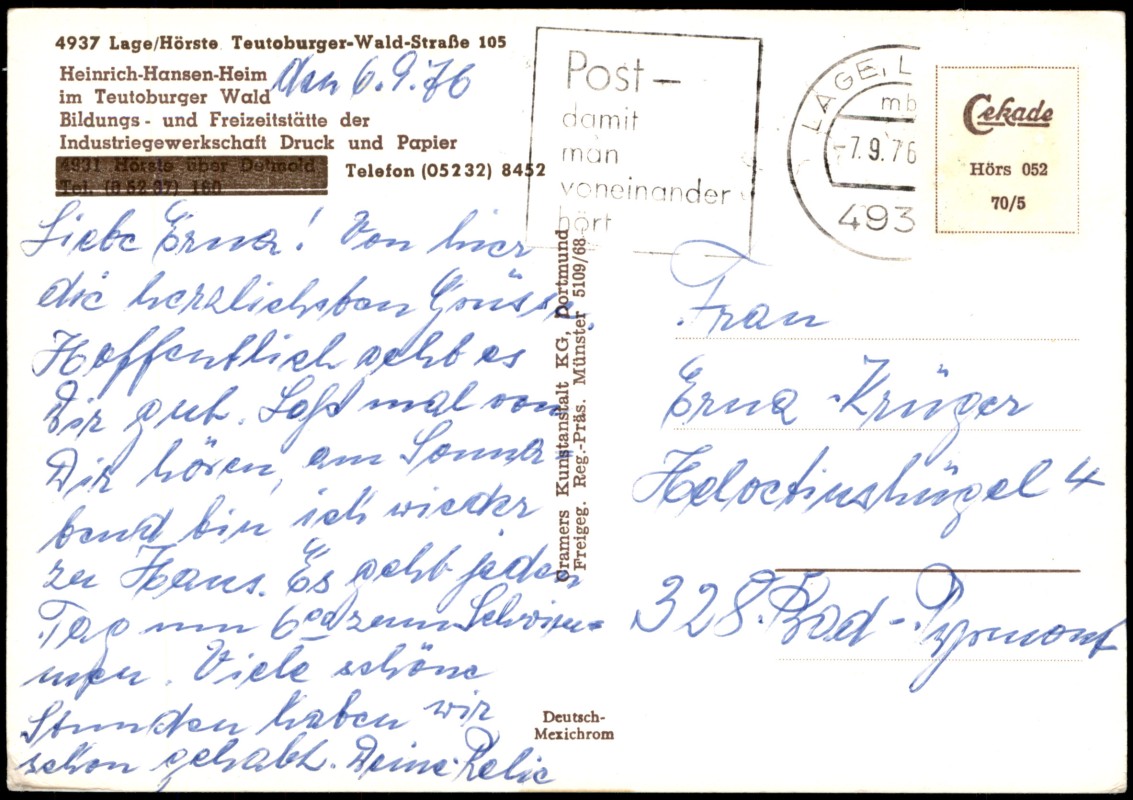 4937 Lage/Hörste Teutoburger-Wald-Straße 105
Heinrich-Hansen-Heim
im Teutoburger Wald
Bildungs- und Freizeitstätte der
Industriegewerkschaft Druck und Papier
4931 Hörste über Detmold
Tel. (0 52 37) 160
Telefon (05232) 8452
den 6.9.76
Liebe Erna! Von hier
die herzlichsten Grüsse.
Hoffentlich geht es
Dir gut. Laß mal von
Dir hören, am Sonna
bend bin ich wieder
zu Haus. Es geht jeden
Tag um 6 zum Schwim=
men. Viele schöne
Stunden haben wir
schon gehabt. Deine
Post –
damit
man
voneinander
hört
LAGE, L
mb
-7.9.76
493
Cekade
Hörs 052
70/5
Cramers Kunstanstalt KG, Dortmund
Freigeg. Reg.-Präs. Münster 5109/68
Frau
Erna Krüger
Helvetiushügel 4
328 Bad-Pyrmont
Deutsch-
Mexichrom